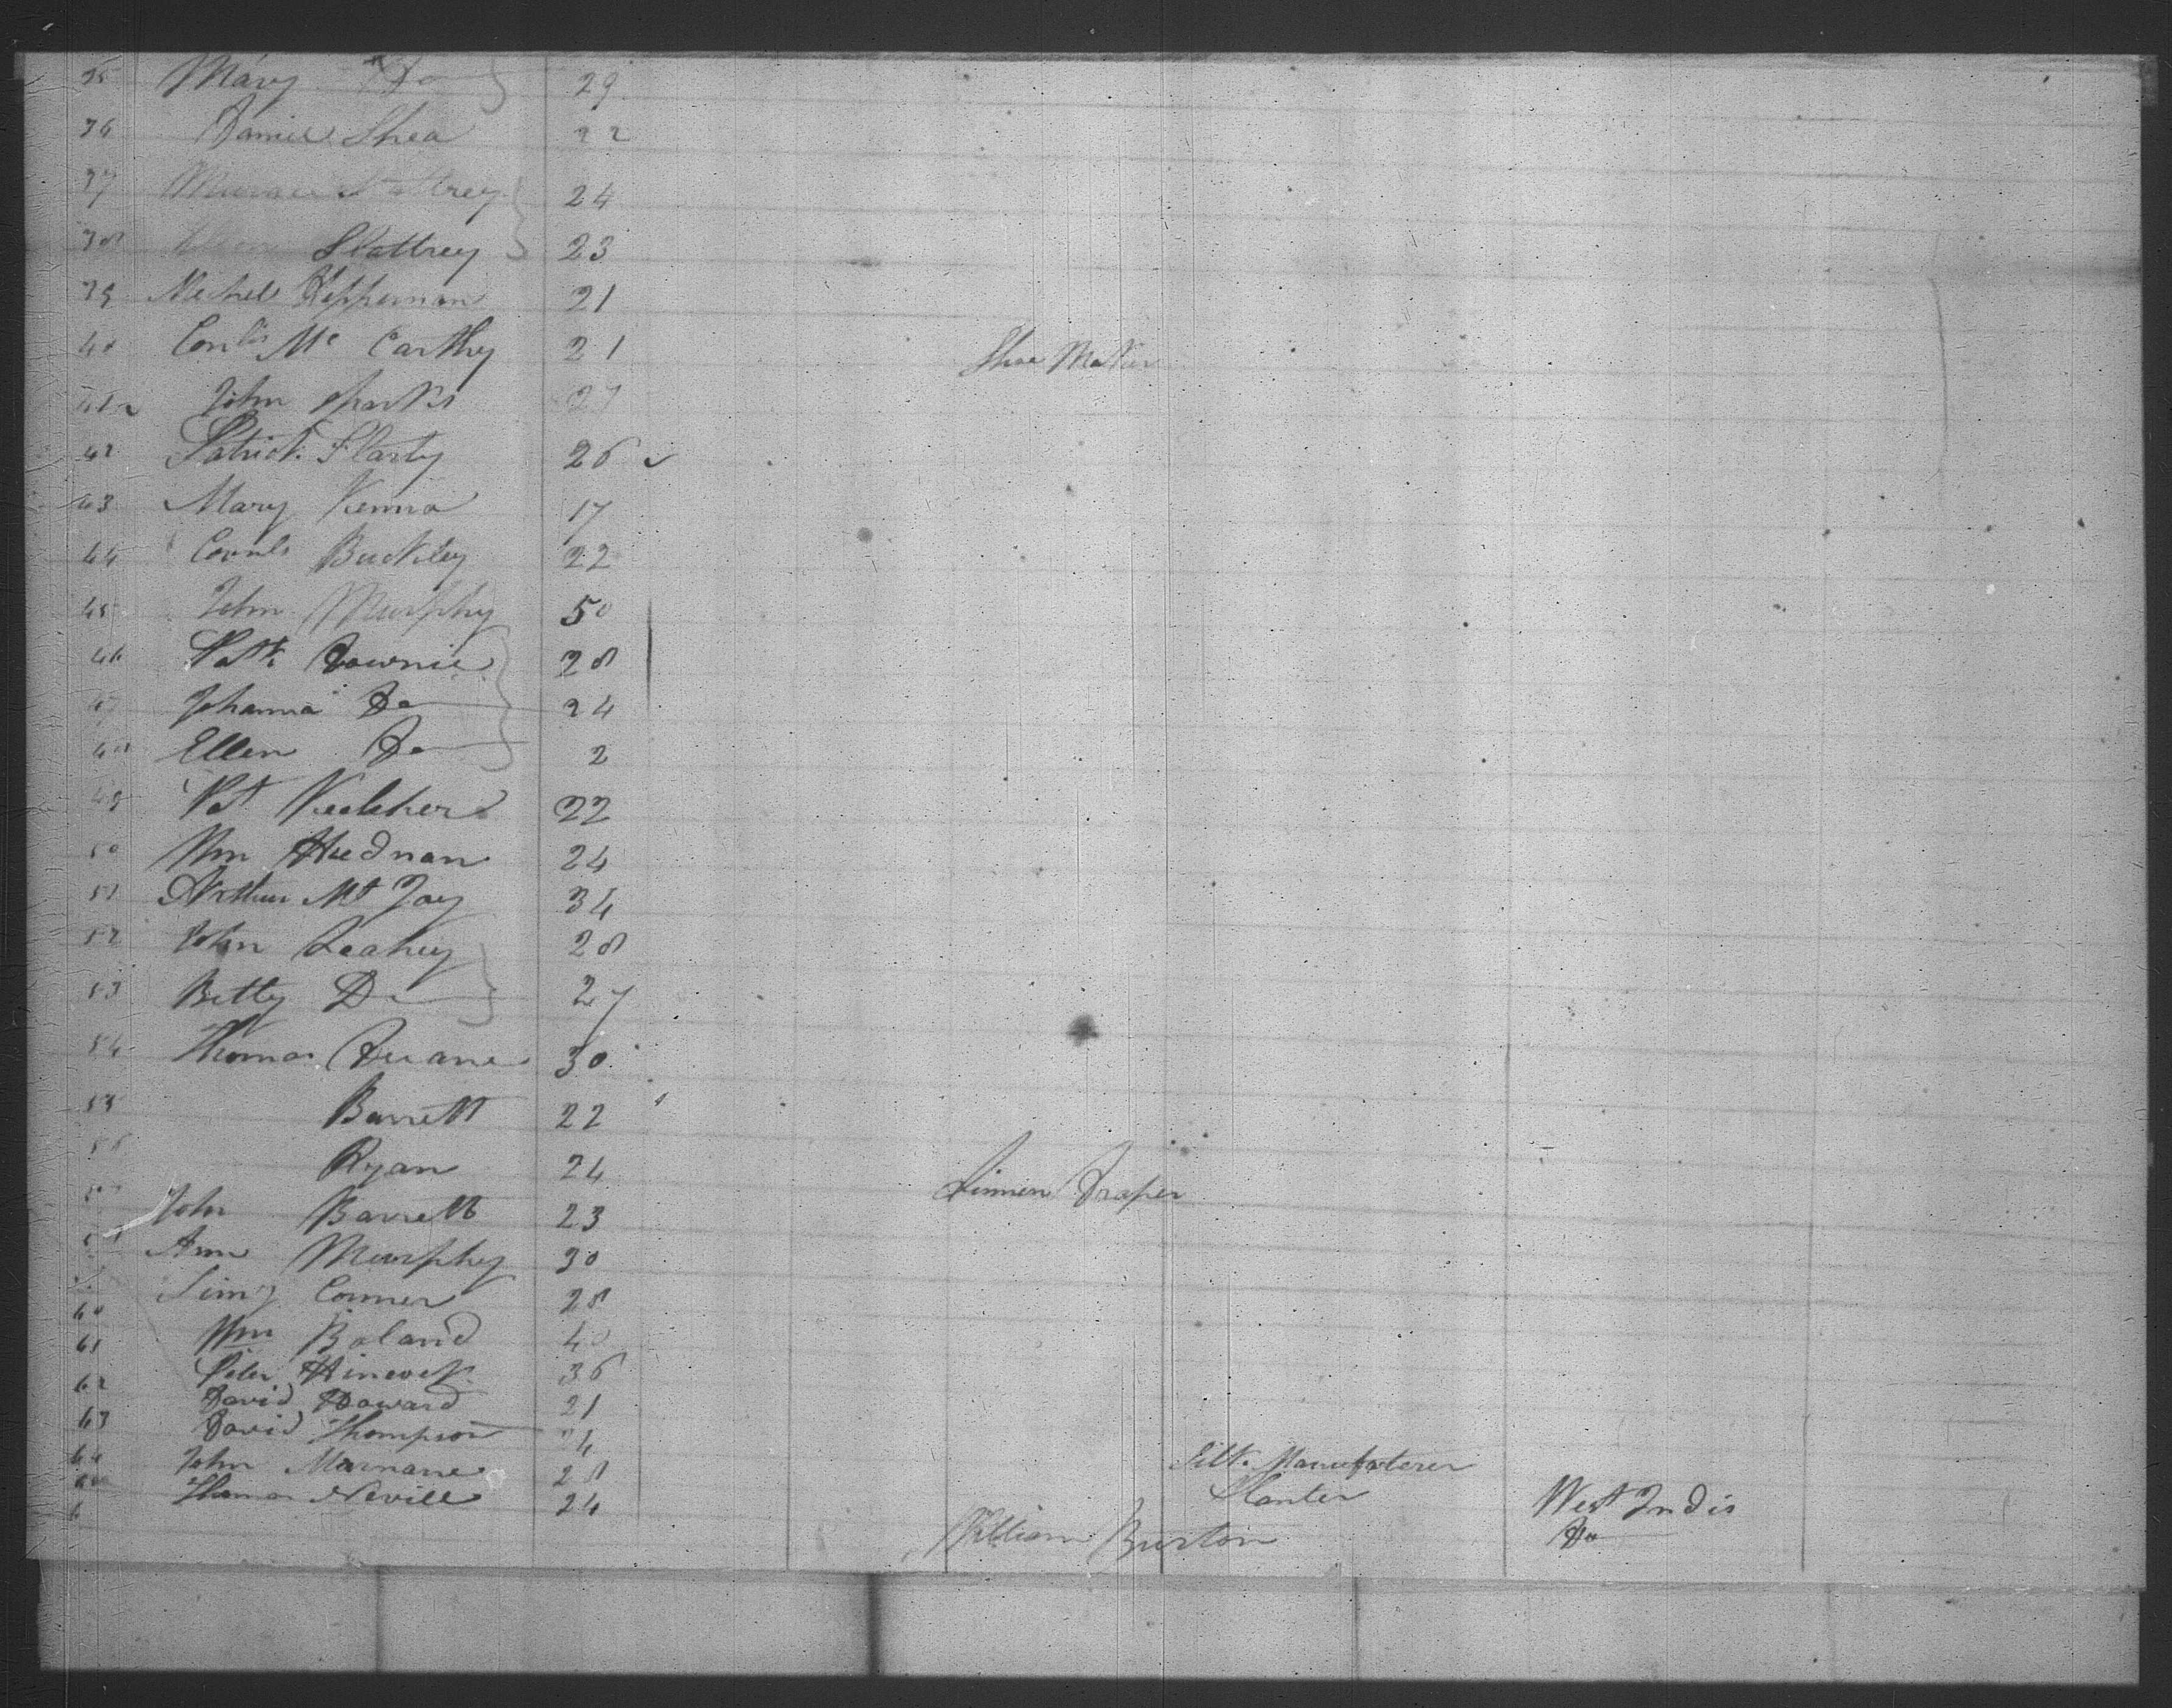 35 Mary Do 29
36 Daniel Shea 22
37 Slattrey 24
38 Slattrey 23
39 Michel Heffernan 21
40 Corn.ls Mc Carthy 21 Shoe Maker
41 John Sparks 27
42 Patrick Flarty 26
43 Mary Kenna 17
44 Cornls Buckley 22
45 John Murphy 50
46 Patk Downie 28
47 Johanna Do 24
48 Ellen Do 2
49 Pat Keeleher 22
50 Wm Hudnan 24
51 Arthur Joy 34
52 John Leahey 28
53 Betty Do 27
54 Thomas Duane 30
55 Barrett 22
56 Ryan 24 Linnen Draper
John Barrett 23
58 Ann Murphy 30
Conner 28
60 Wm Boland 40
61 Peter 36
62 David Howard 21
63 David Thompson 24
64 John Marnane 28 Silk Manufaterer
Thomas Nevill 24 Planter West Indis
William Burton Do